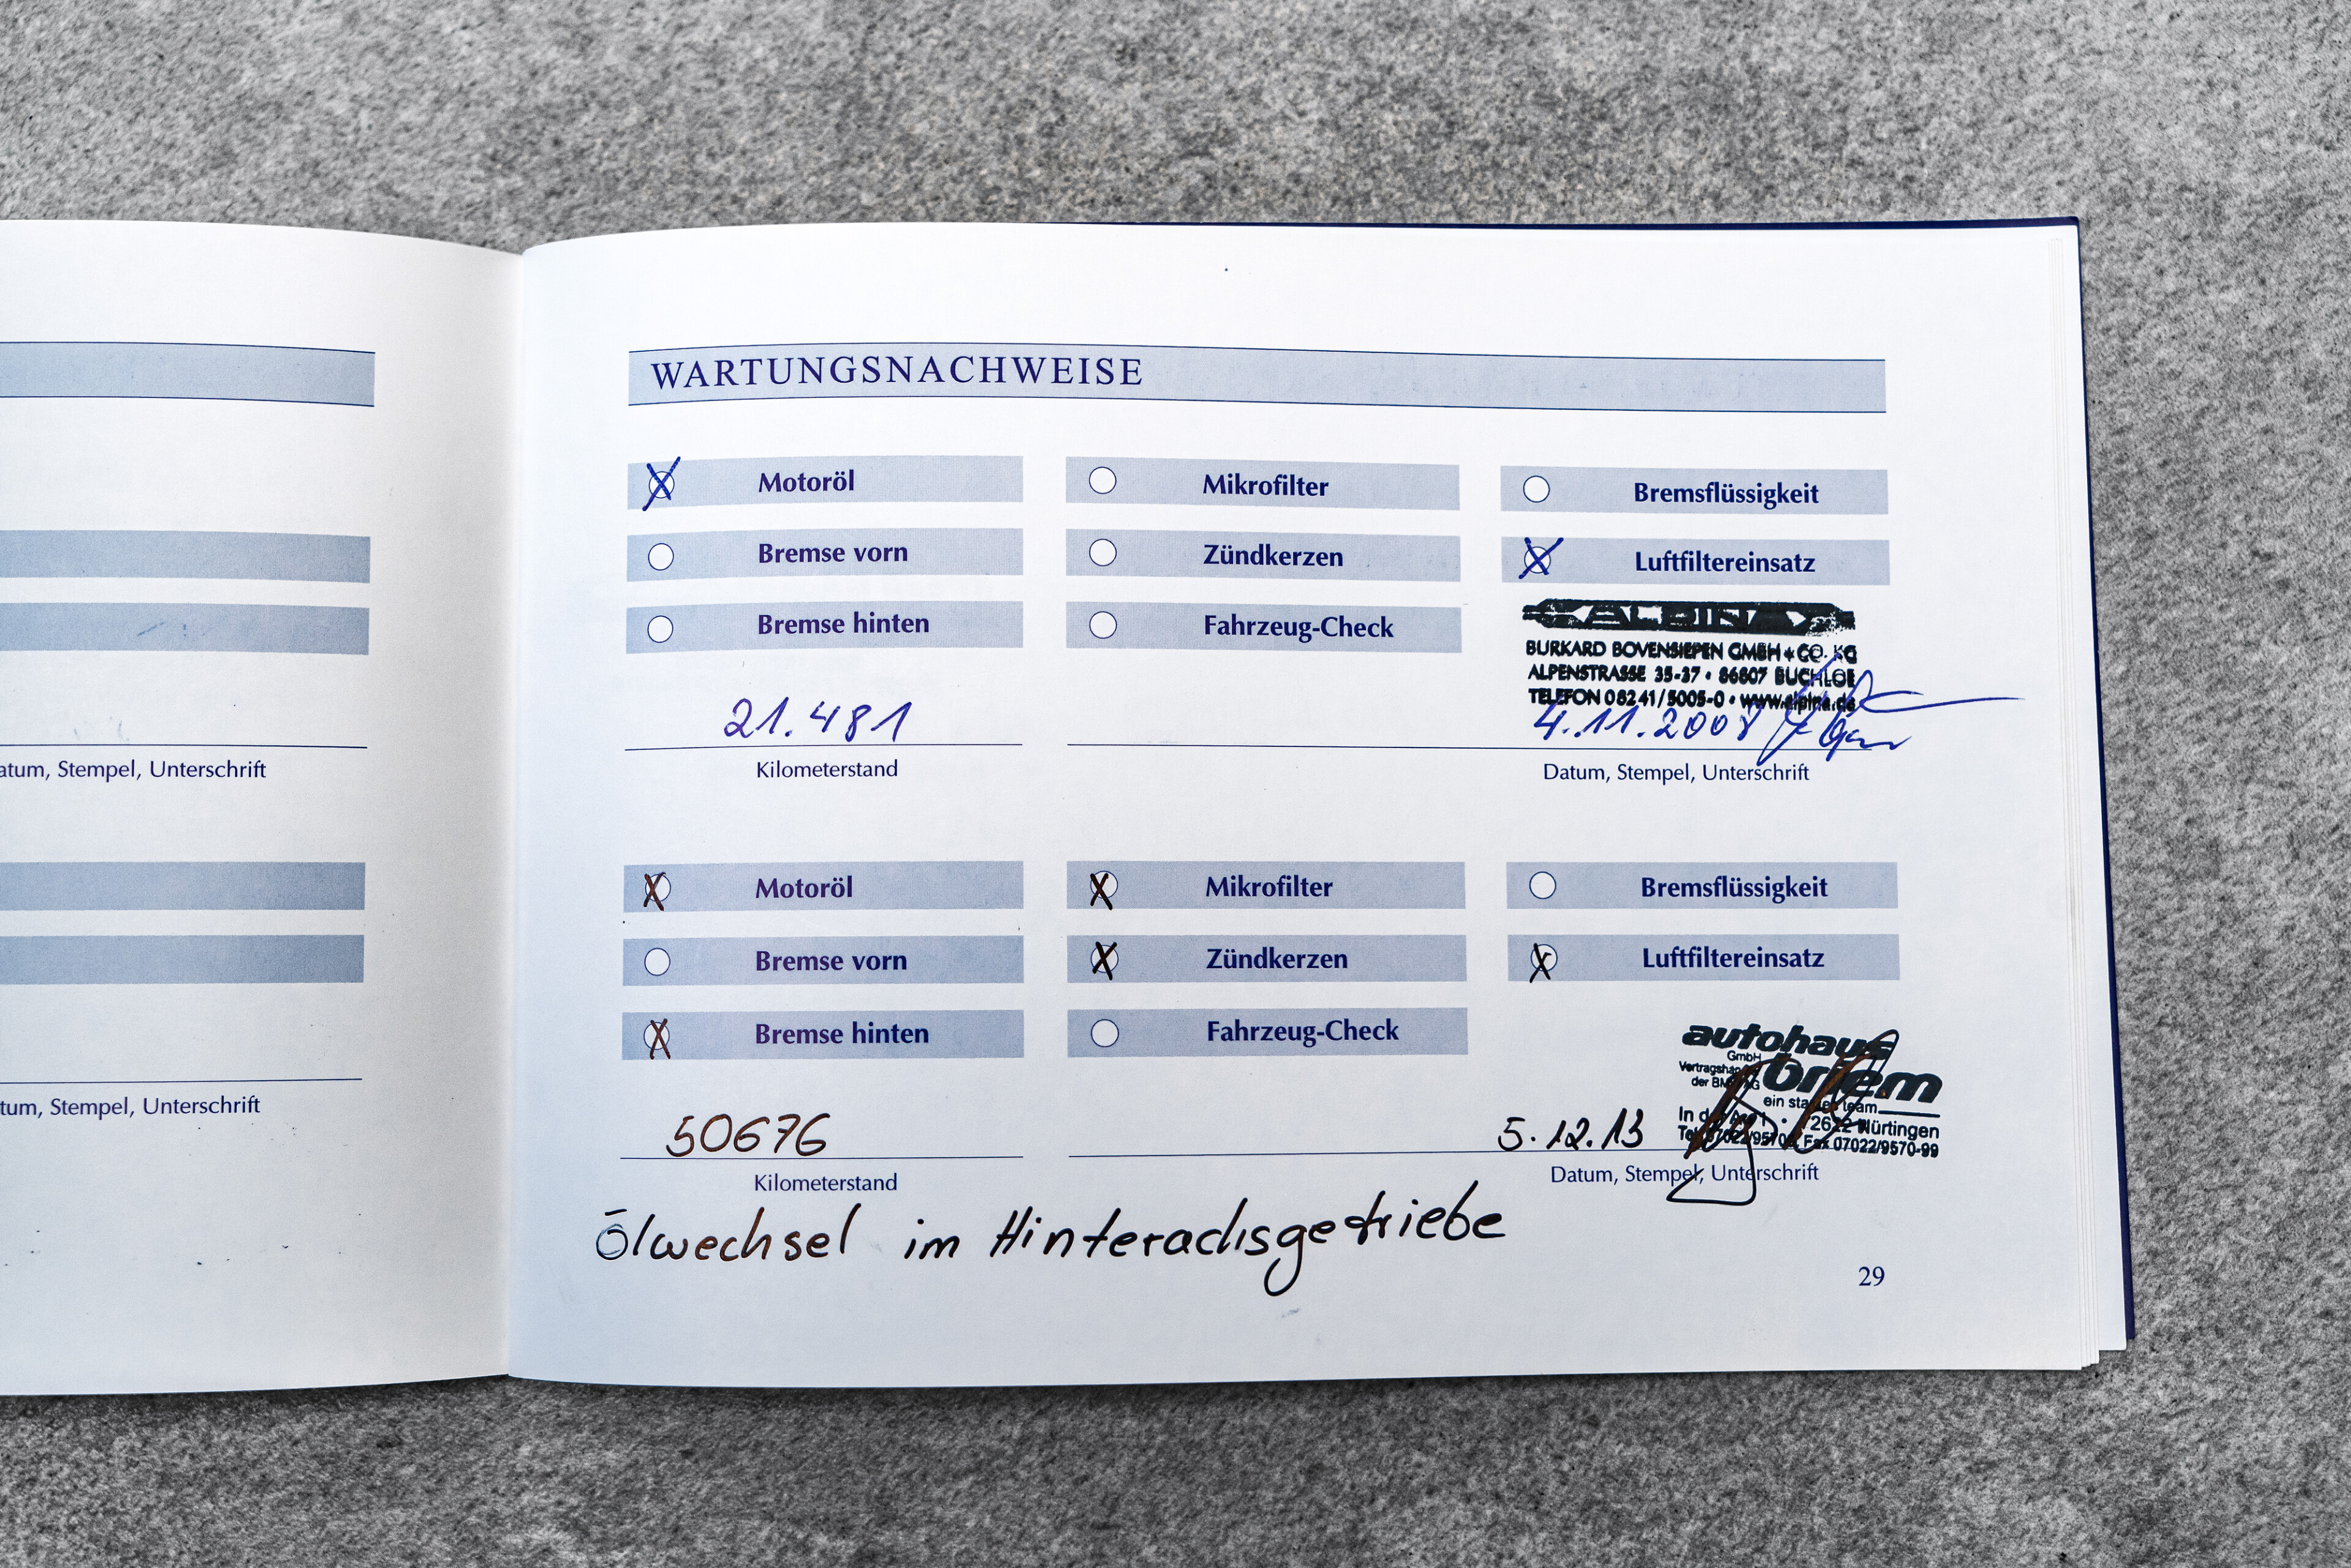 WARTUNGSNACHWEISE
Motoröl Mikrofilter Bremsflüssigkeit
Bremse vorn Zündkerzen Luftfiltereinsatz
Bremse hinten Fahrzeug-Check
ALPINA
BURKARD BOVENSIEPEN GMBH + CO. KG
ALPENSTRASSE 35-37 • 86807 BUCHLOE
TELEFON 08241/5005-0 • www.alpina.de
21.481 4.11.2008
atum, Stempel, Unterschrift
Kilometerstand Datum, Stempel, Unterschrift
Motoröl Mikrofilter Bremsflüssigkeit
Bremse vorn Zündkerzen Luftfiltereinsatz
Bremse hinten Fahrzeug-Check
autohaus
GmbH
der BMW AG
ein starkes team
Nürtingen
Fax 07022/9570-99
50676 5.12.13
tum, Stempel, Unterschrift
Kilometerstand Datum, Stempel, Unterschrift
Ölwechsel im Hinterachsgetriebe
29